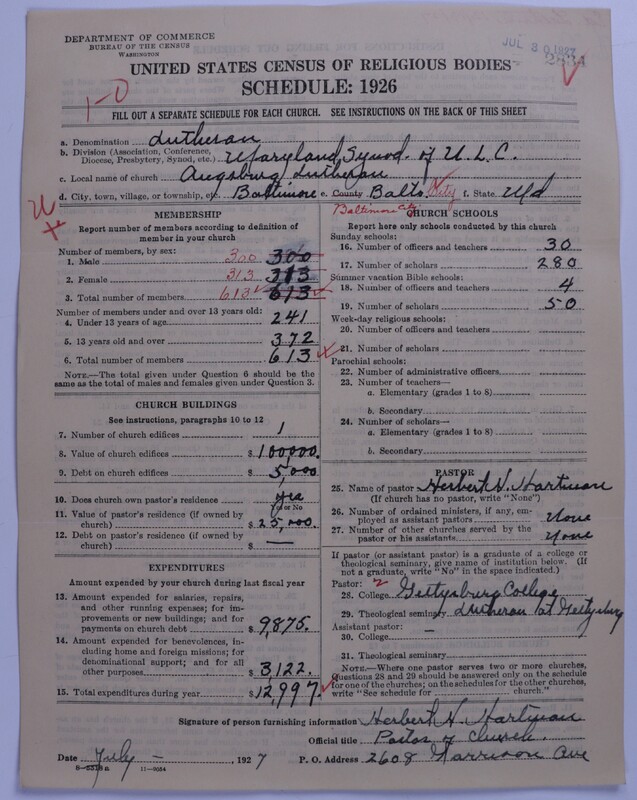 DEPARTMENT OF COMMERCE
BUREAU OF THE CENSUS
WASHINGTON
JUL 30 1927
UNITED STATES CENSUS OF RELIGIOUS BODIES
SCHEDULE: 1926
1-0
FILL OUT A SEPARATE SCHEDULE FOR EACH CHURCH. SEE INSTRUCTIONS ON THE BACK OF THIS SHEET
a. Denomination Lutheran
b. Division (Association, Conference, Diocese, Presbytery, Synod, etc.) Maryland Synod of U.L.C.
c. Local name of church Augsburg Lutheran
d. City, town, village, or township, etc. Baltimore e. County Balto. City f. State Md
Baltimore City
MEMBERSHIP
Report number of members according to definition of
member in your church
Number of members, by sex:
1. Male 300 300
2. Female 313 313
3. Total number of members 613 613
Number of members under and over 13 years old:
4. Under 13 years of age 241
5. 13 years old and over 372
6. Total number of members 613
NOTE.—The total given under Question 6 should be
same as the total of males and females given under Question 3.
CHURCH BUILDINGS
See instructions, paragraphs 10 to 12
7. Number of church edifices 1
8. Value of church edifices $ 100000.
9. Debt on church edifices $ 5,000
10. Does church own pastor's residence yes
Yes or No
11. Value of pastor's residence (if owned by
church) $ 25,000.
12. Debt on pastor's residence (if owned by
church) $ —
EXPENDITURES
Amount expended by your church during last fiscal year
13. Amount expended for salaries, repairs,
and other running expenses; for im-
provements or new buildings; and for
payments on church debt $ 9875.
14. Amount expended for benevolences, in-
cluding home and foreign missions; for
denominational support; and for all
other purposes $ 3,122.
15. Total expenditures during year $ 12,997.
CHURCH SCHOOLS
Report here only schools conducted by this church
Sunday schools:
16. Number of officers and teachers 30
17. Number of scholars 280
Summer vacation Bible schools:
18. Number of officers and teachers 4
19. Number of scholars 50
Week-day religious schools:
20. Number of officers and teachers
21. Number of scholars
Parochial schools:
22. Number of administrative officers
23. Number of teachers—
a. Elementary (grades 1 to 8)
b. Secondary
24. Number of scholars—
a. Elementary (grades 1 to 8)
b. Secondary
PASTOR
25. Name of pastor Herbert H. Hartman
(If church has no pastor, write "None")
26. Number of ordained ministers, if any, em-
ployed as assistant pastors None
27. Number of other churches served by the
pastor or his assistants None
If pastor (or assistant pastor) is a graduate of a college or
theological seminary, give name of institution below. (If
not a graduate, write "No" in the space indicated.)
Pastor: 2
28. College Gettysburg College
29. Theological seminary Lutheran at Gettysburg
Assistant pastor: —
30. College
31. Theological seminary
NOTE.—Where one pastor serves two or more churches,
Questions 28 and 29 should be answered only on the schedule
for one of the churches; on the schedules for the other churches,
write "See schedule for church."
Signature of person furnishing information Herbert H. Hartman
Official title Pastor of Church.
Date July — , 1927 P. O. Address 2608 Garrison Ave
8—5318a 11—9084